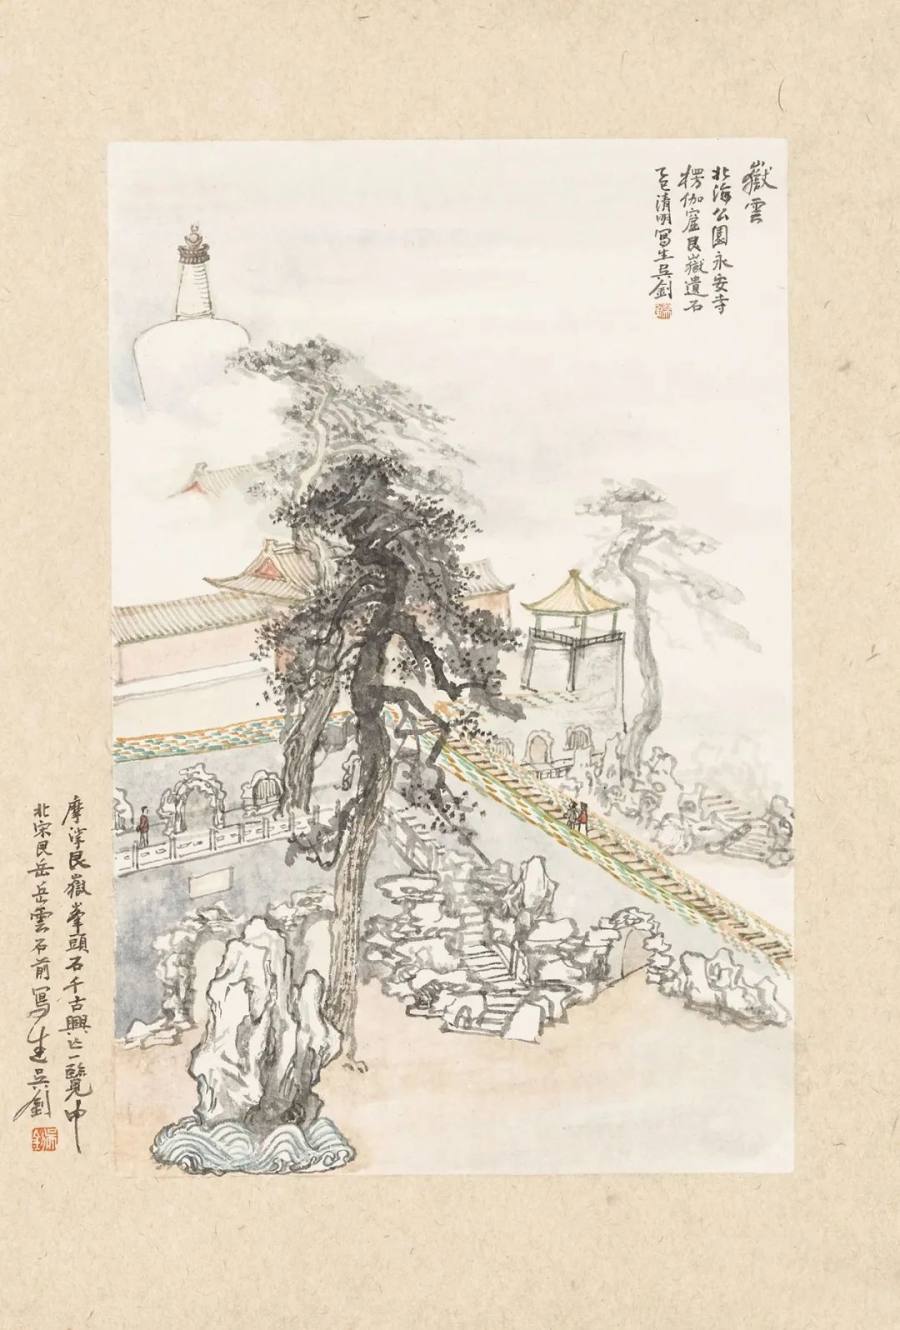 嶽雲
北海公園永安寺
楞伽窟艮嶽遺石
乙巳清明寫生吴劍
摩挲艮嶽峯頭石千古興亡一覽中
北宋艮岳岳雲石前寫生吴劍